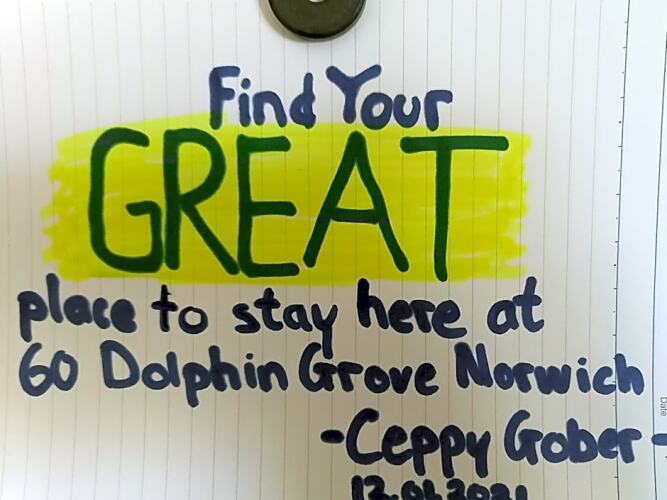 Find Your
GREAT
place to stay here at
60 Dolphin Grove Norwich
-Ceppy Gober-
Date